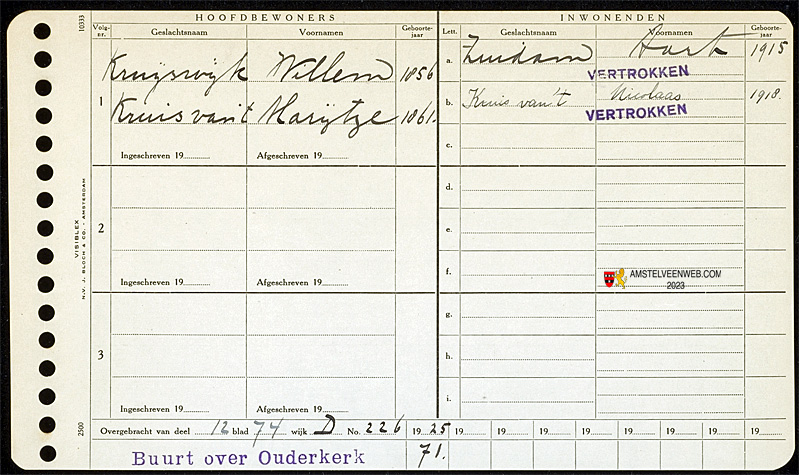 HOOFDBEWONERS
INWONENDEN
10333
Volg-nr.
Geslachtsnaam
Voornamen
Geboorte-jaar
Lett.
Geslachtsnaam
Voornamen
Geboorte-jaar
1
Kruijswijk Willem 1856
Kruis van 't Marijtze 1861.
Ingeschreven 19
Afgeschreven 19
a.
Zuidam 1915
VERTROKKEN
b.
Kruis van 't Nicolaas 1918.
VERTROKKEN
c.
2
Ingeschreven 19
Afgeschreven 19
d.
e.
f.
AMSTELVEENWEB.COM
2023
3
Ingeschreven 19
Afgeschreven 19
g.
h.
i.
VISIBLEX
N.V. J. BLOCH & CO. - AMSTERDAM
2500
Overgebracht van deel 12 blad 74 wijk D No. 226 19 25 19 19 19 19 19 19 19 19
Buurt over Ouderkerk 71.